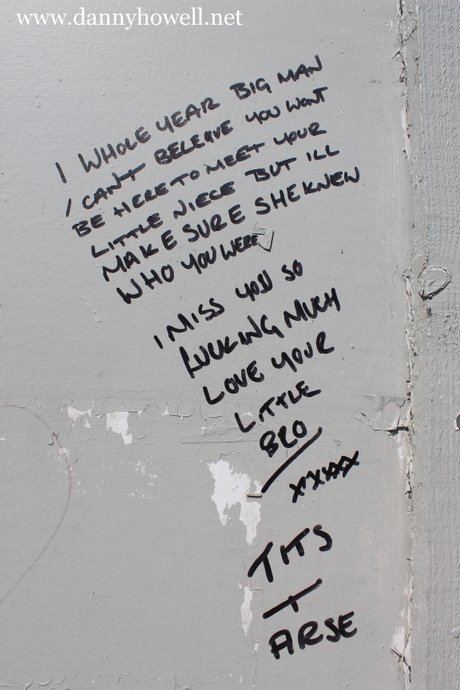 www.dannyhowell.net
1 WHOLE YEAR BIG MAN
I CANT BELEIVE YOU WONT
BE HERE TO MEET YOUR
LITTLE NIECE BUT ILL
MAKE SURE SHE KNEW
WHO YOU WERE
I MISS YOU SO
FUCKING MUCH
LOVE YOUR
LITTLE
BRO
XXXXX
TITS
+
ARSE